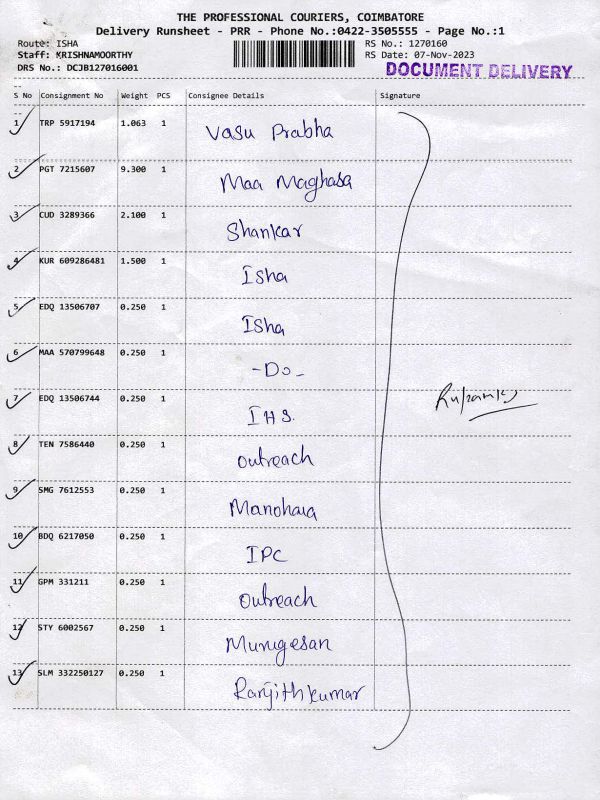 THE PROFESSIONAL COURIERS, COIMBATORE
Delivery Runsheet - PRR - Phone No.:0422-3505555 - Page No.:1
Route: ISHA RS No.: 1270160
Staff: KRISHNAMOORTHY RS Date: 07-Nov-2023
DRS No.: DCJB127016001 DOCUMENT DELIVERY
S No Consignment No Weight PCS Consignee Details Signature
1 TRP 5917194 1.063 1 Vasu Prabha
2 PGT 7215607 9.300 1 Maa Maghasa
3 CUD 3289366 2.100 1 Shankar
4 KUR 609286481 1.500 1 Isha
5 EDQ 13506707 0.250 1 Isha
6 MAA 570799648 0.250 1 -Do-
7 EDQ 13506744 0.250 1 IHS.
8 TEN 7586440 0.250 1 outreach
9 SMG 7612553 0.250 1 Manohara
10 BDQ 6217050 0.250 1 IPC
11 GPM 331211 0.250 1 Outreach
12 STY 6002567 0.250 1 Murugesan
13 SLM 332250127 0.250 1 Ranjithkumar